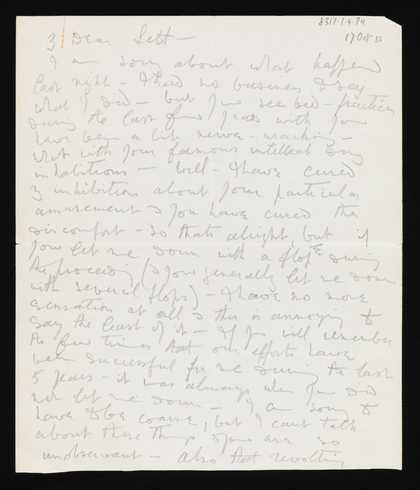 8317.1.4.74
17 Oct
3 Dear Sett -
I am sorry about what happened
last night - I had no business to say
what I did - but I was
during the last few I was with you
have been a bit nerve-wracking -
what with your famous intellect
inhibitions - Well - I have cured
inhibition about your particular
amusement & you have cured the
discomfort - so thats alright, but if
you let me down with a flop during
the proceeding (& you generally let me down
with several flops) - I have no more
sensation at all & this is annoying to
say the least of it - If you will remember
the few times that our efforts have
been successful for me during the last
5 years - it was always when you did
not let me down - I am sorry to
have to be coarse, but I cant talk
about these things & you are so
unobservant - also that revolting